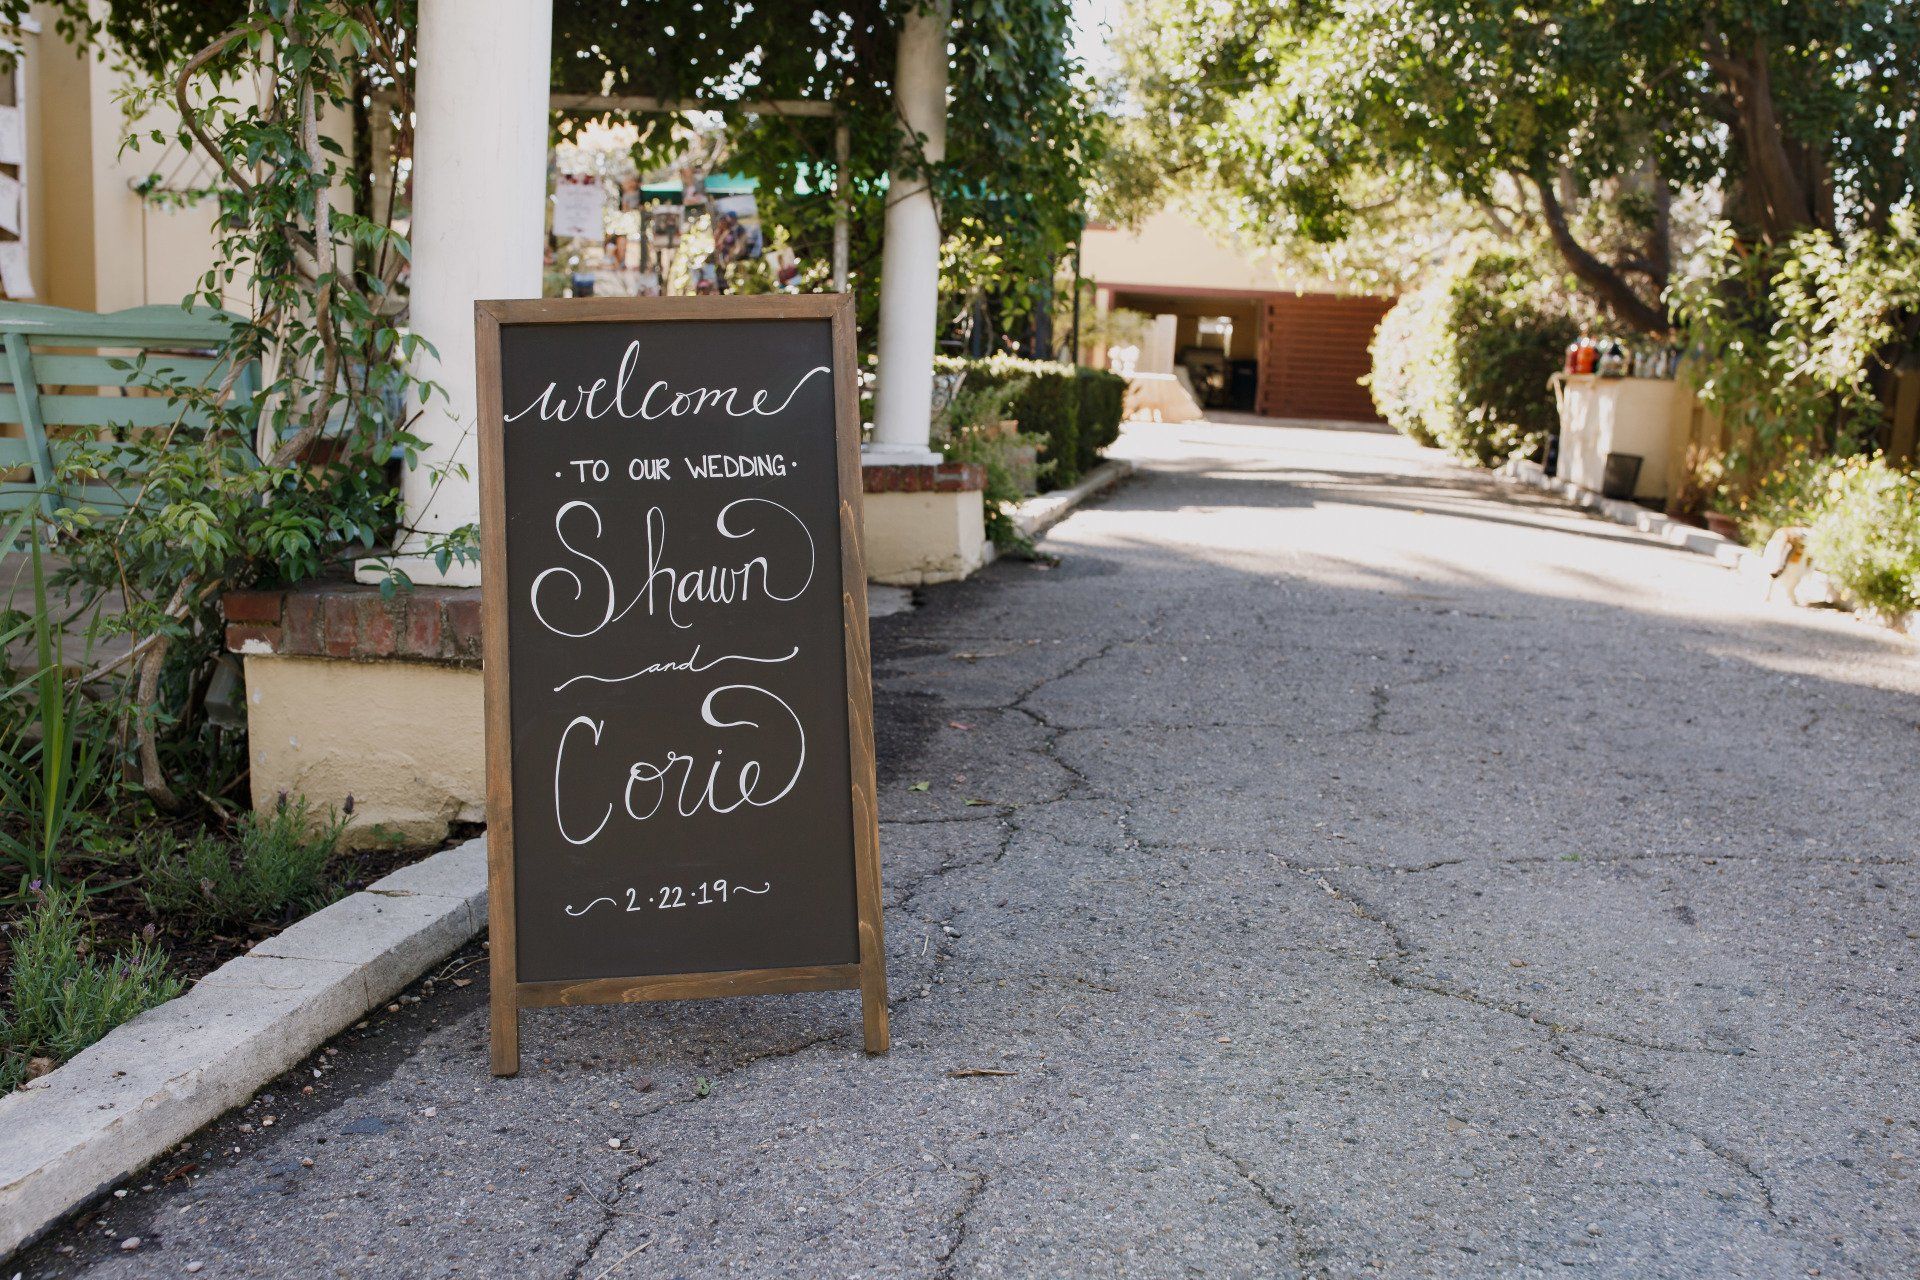 welcome
· TO OUR WEDDING ·
Shawn
and
Corie
2·22·19